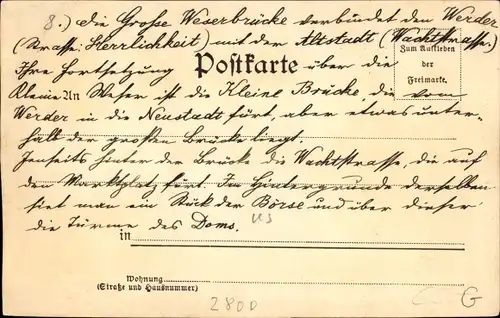 8.) die Große Weserbrücke verbündet den Werder
(Strasse: Herrlichkeit) mit der Altstadt (Wachtstrasse.)
Zum Aufkleben
der
Freimarke.
Ihre Fortsetzung über die
Postkarte
Kleine Weser ist die Kleine Brücke, die vom
An
Werder in die Neustadt fürt, aber etwas unter-
halb der großen Brücke liegt.
Jenseits hinter der Brücke die Wachtstrasse, die auf
den Marktplatz fürt. Im Hintergrunde derselben
siet man ein Stück der Börse und über dieser
die Türme des Doms.
in
Wohnung
(Straße und Hausnummer)
2800
G